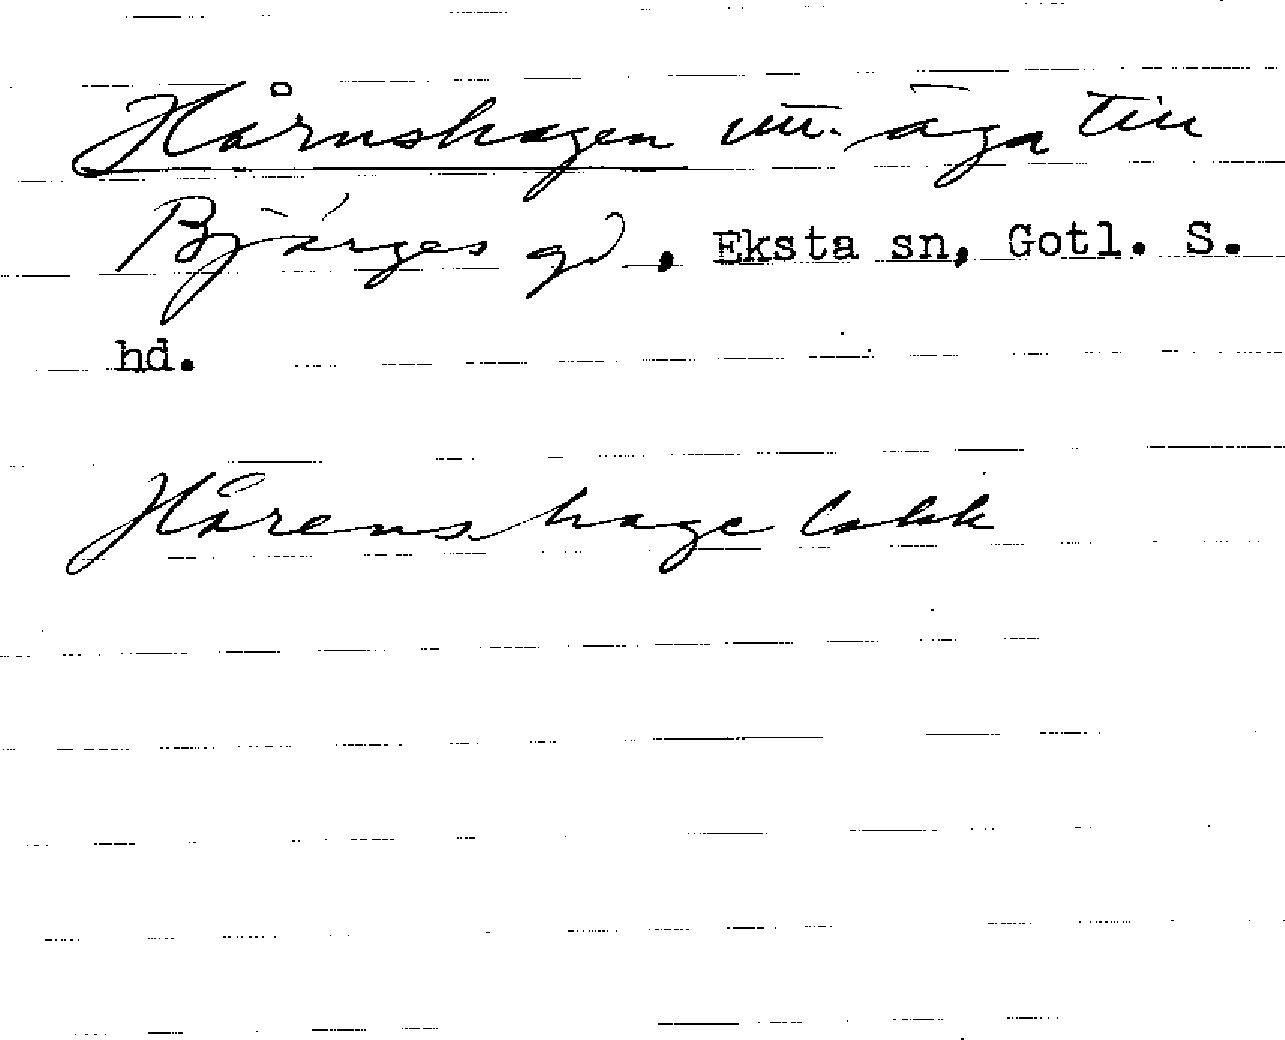 Hårnshagen utt. äga till
Bjärges gd, Eksta sn, Gotl. S.
hd.
Hårens hage